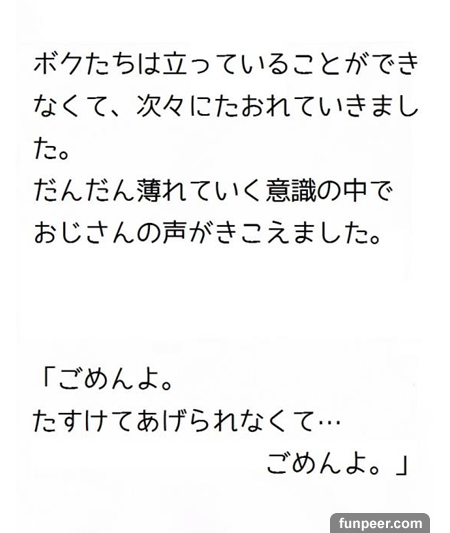 ボクたちは立っていることができ
なくて、次々にたおれていきまし
た。
だんだん薄れていく意識の中で
おじさんの声がきこえました。
「ごめんよ。
たすけてあげられなくて…
ごめんよ。」
funpeer.com